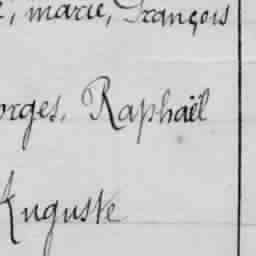 , marie, François
orges, Raphaël
Auguste